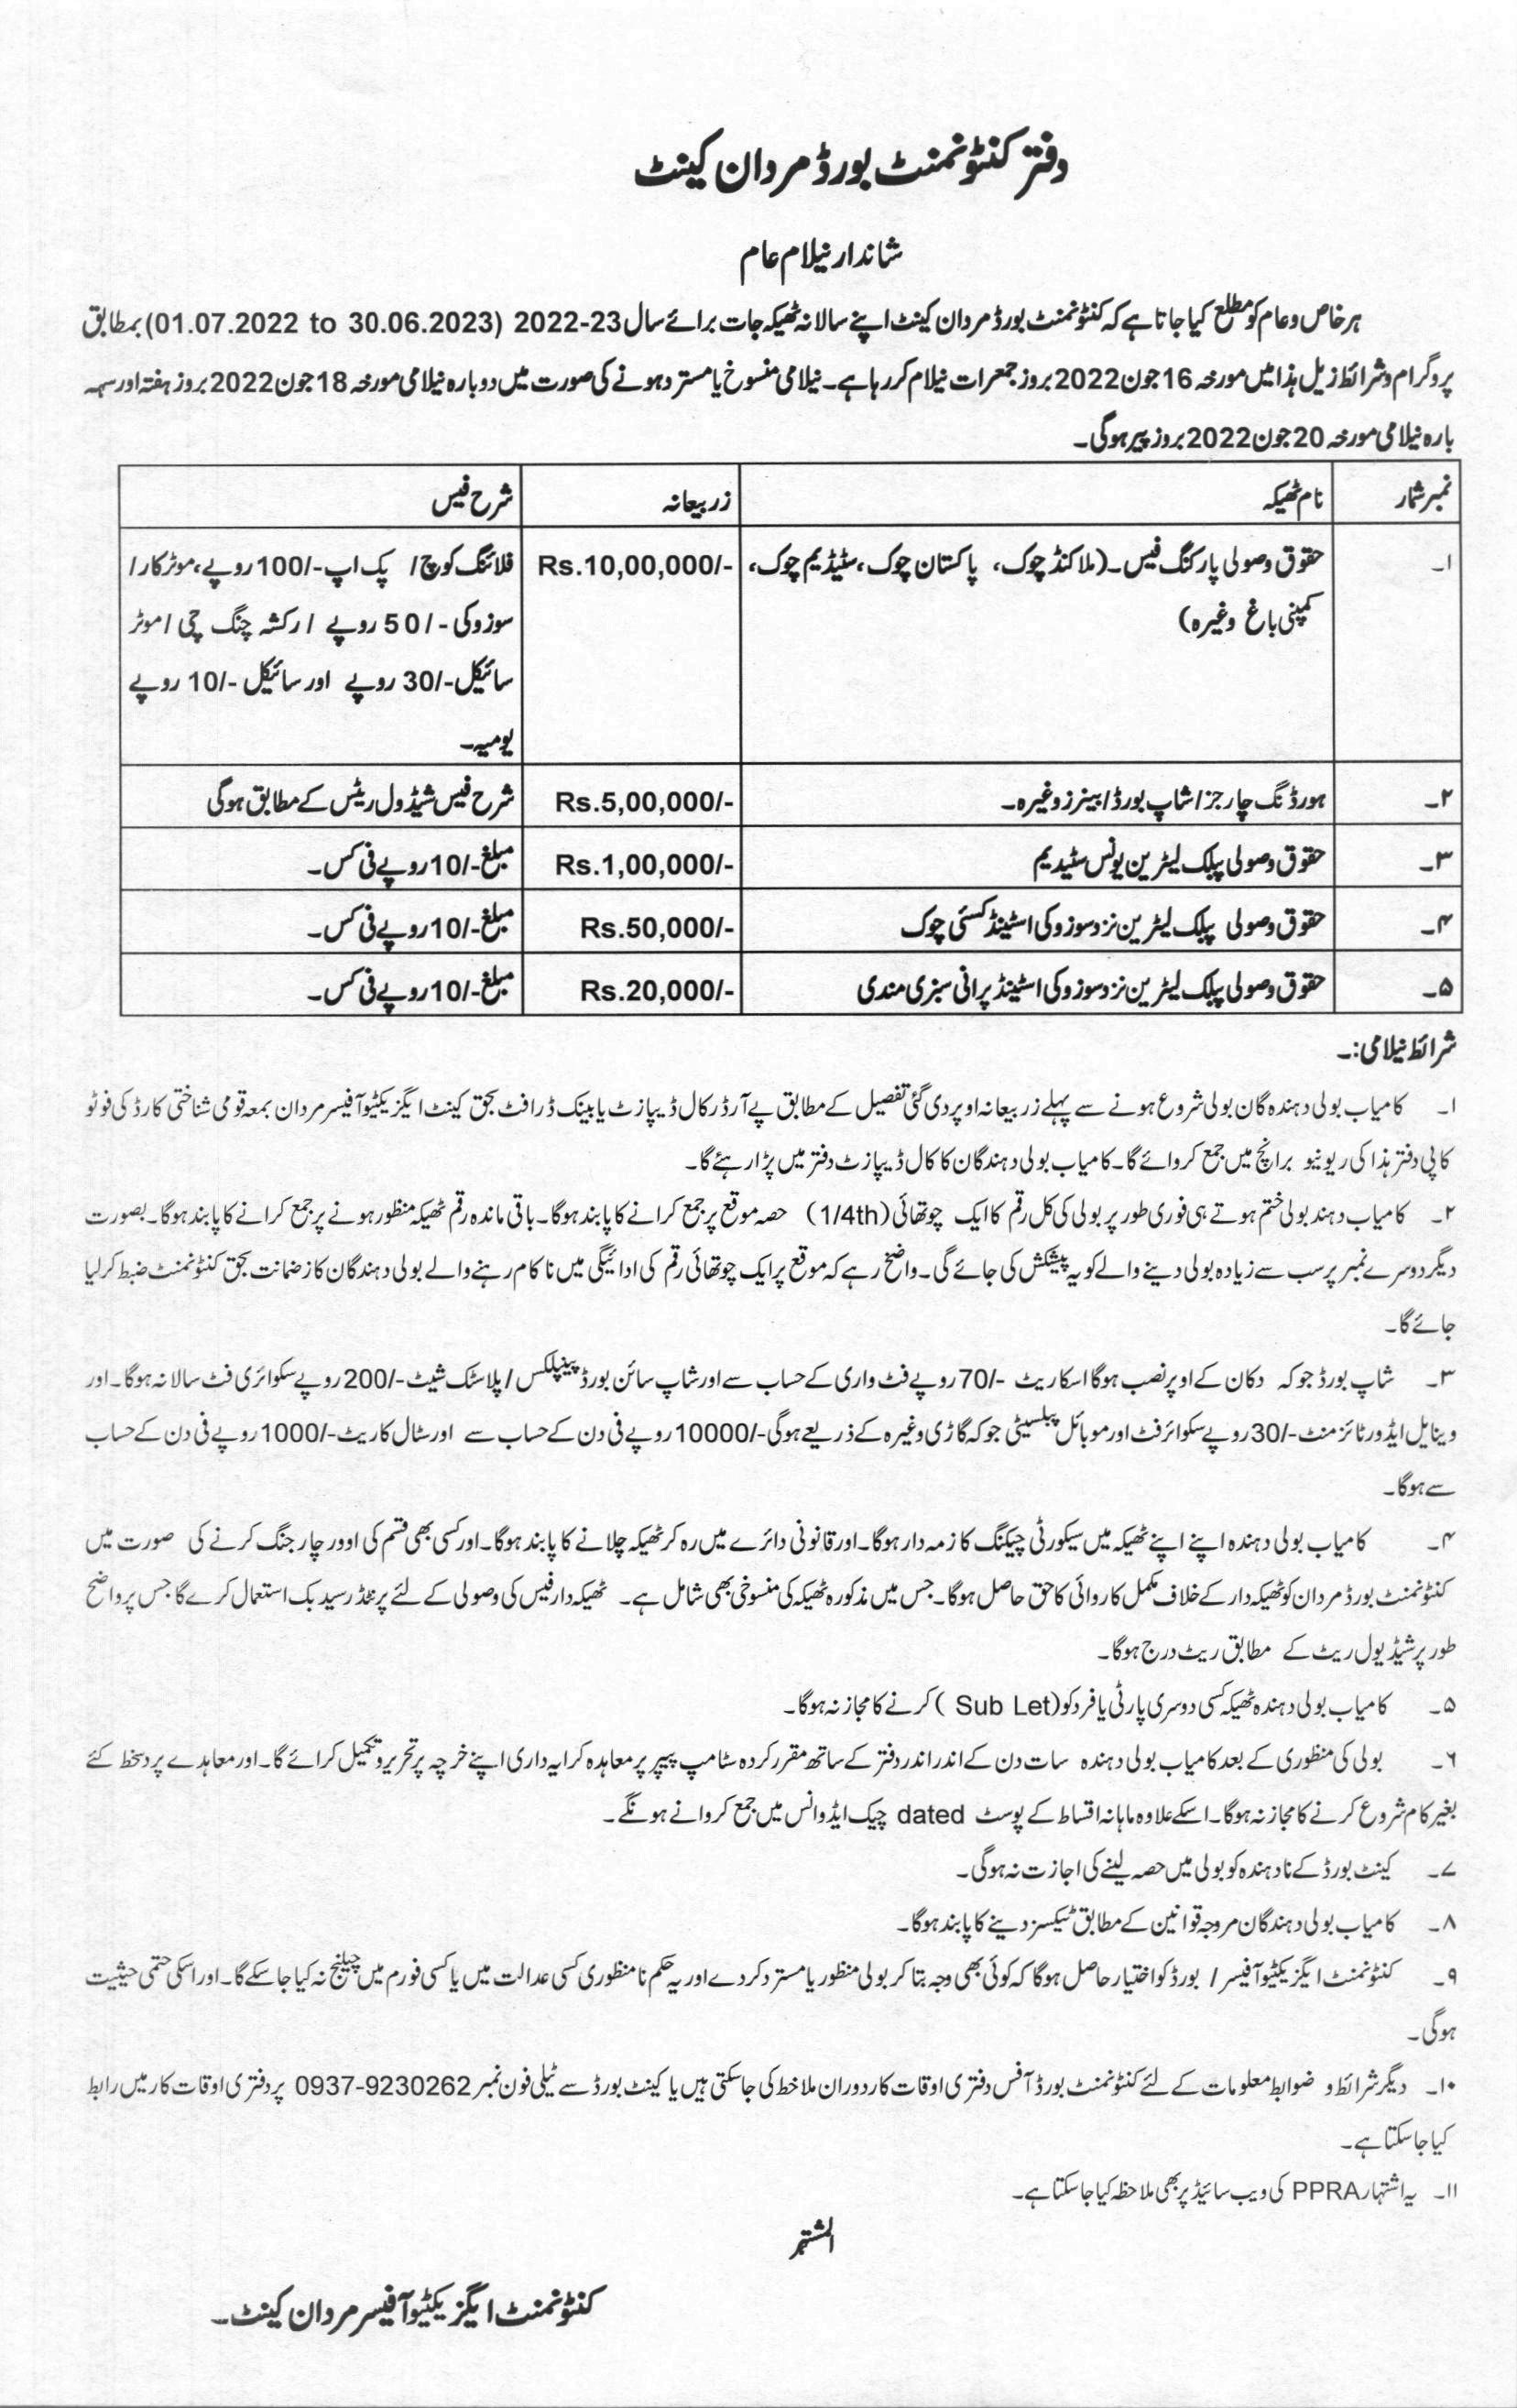 دفتر کنٹونمنٹ بورڈ مردان کینٹ
شاندار نیلام عام
ہر خاص و عام کو مطلع کیا جاتا ہے کہ کنٹونمنٹ بورڈ مردان کینٹ اپنے سالانہ ٹھیکہ جات برائے سال 2022-23 (01.07.2022 to 30.06.2023) بمطابق
پروگرام و شرائط زیل ہذا میں مورخہ 16 جون 2022 بروز جمعرات نیلام کر رہا ہے۔ نیلامی منسوخ یا مسترد ہونے کی صورت میں دوبارہ نیلامی مورخہ 18 جون 2022 بروز ہفتہ اور سہہ
بارہ نیلامی مورخہ 20 جون 2022 بروز پیر ہوگی۔
نمبر شمار نام ٹھیکہ زر بیعانہ شرح فیس
۱۔ حقوق وصولی پارکنگ فیس۔ (ملاکنڈ چوک، پاکستان چوک، سٹیڈیم چوک، Rs.10,00,000/- فلائنگ کوچ/ پک اپ -/100 روپے، موٹر کار/
کمپنی باغ وغیرہ) سوزوکی -/50 روپے / رکشہ چنگ چی / موٹر
سائیکل -/30 روپے اور سائیکل -/10 روپے
یومیہ۔
۲۔ ہورڈنگ چارجز / شاپ بورڈ / بینرز وغیرہ۔ Rs.5,00,000/- شرح فیس شیڈول ریٹس کے مطابق ہوگی
۳۔ حقوق وصولی پبلک لیٹرین یونس سٹیڈیم Rs.1,00,000/- مبلغ -/10 روپے فی کس۔
۴۔ حقوق وصولی پبلک لیٹرین نزد سوزوکی اسٹینڈ کسئی چوک Rs.50,000/- مبلغ -/10 روپے فی کس۔
۵۔ حقوق وصولی پبلک لیٹرین نزد سوزوکی اسٹینڈ پرانی سبزی مندی Rs.20,000/- مبلغ -/10 روپے فی کس۔
شرائط نیلامی:۔
۱۔ کامیاب بولی دہندہ گان بولی شروع ہونے سے پہلے زر بیعانہ اوپر دی گئی تفصیل کے مطابق پے آرڈر کال ڈیپازٹ یا بینک ڈرافٹ بحق کینٹ ایگزیکٹیو آفیسر مردان بمعہ قومی شناختی کارڈ کی فوٹو
کاپی دفتر ہذا کی ریونیو برانچ میں جمع کروائے گا۔ کامیاب بولی دہندگان کا کال ڈیپازٹ دفتر میں پڑا رہئے گا۔
۲۔ کامیاب دہند بولی ختم ہوتے ہی فوری طور پر بولی کی کل رقم کا ایک چوتھائی (1/4th) حصہ موقع پر جمع کرانے کا پابند ہوگا۔ باقی ماندہ رقم ٹھیکہ منظور ہونے پر جمع کرانے کا پابند ہوگا۔ بصورت
دیگر دوسرے نمبر پر سب سے زیادہ بولی دینے والے کو یہ پیشکش کی جائے گی۔ واضح رہے کہ موقع پر ایک چوتھائی رقم کی ادائیگی میں ناکام رہنے والے بولی دہندگان کا زضمانت بحق کنٹونمنٹ ضبط کرلیا
جائے گا۔
۳۔ شاپ بورڈ جو کہ دکان کے اوپر نصب ہوگا اسکا ریٹ -/70 روپے فٹ واری کے حساب سے اور شاپ سائن بورڈ پینپلکس / پلاسٹک شیٹ -/200 روپے سکوائری فٹ سالانہ ہوگا۔ اور
وینایل ایڈورٹائزمنٹ -/30 روپے سکوائر فٹ اور موبائل پبلسیٹی جو کہ گاڑی وغیرہ کے ذریعے ہوگی -/10000 روپے فی دن کے حساب سے اور سٹال کا ریٹ -/1000 روپے فی دن کے حساب
سے ہوگا۔
۴۔ کامیاب بولی دہندہ اپنے اپنے ٹھیکہ میں سیکورٹی چیکنگ کا زمہ دار ہوگا۔ اور قانونی دائرے میں رہ کر ٹھیکہ چلانے کا پابند ہوگا۔ اور کسی بھی قسم کی اوور چارجنگ کرنے کی صورت میں
کنٹونمنٹ بورڈ مردان کو ٹھیکہ دار کے خلاف مکمل کاروائی کا حق حاصل ہوگا۔ جس میں مذکورہ ٹھیکہ کی منسوخی بھی شامل ہے۔ ٹھیکہ دار فیس کی وصولی کے لئے پرنٹڈ رسید بک استعمال کرے گا جس پر واضح
طور پر شیڈیول ریٹ کے مطابق ریٹ درج ہوگا۔
۵۔ کامیاب بولی دہندہ ٹھیکہ کسی دوسری پارٹی یا فرد کو (Sub Let) کرنے کا مجاز نہ ہوگا۔
۶۔ بولی کی منظوری کے بعد کامیاب بولی دہندہ سات دن کے اندر اندر دفتر کے ساتھ مقرر کردہ سٹامپ پیپر پر معاہدہ کرایہ داری اپنے خرچہ پر تحریر و تکمیل کرائے گا۔ اور معاہدے پر دستخط کئے
بغیر کام شروع کرنے کا مجاز نہ ہوگا۔ اسکے علاوہ ماہانہ اقساط کے پوسٹ dated چیک ایڈوانس میں جمع کروانے ہونگے۔
۷۔ کینٹ بورڈ کے نادہندہ کو بولی میں حصہ لینے کی اجازت نہ ہوگی۔
۸۔ کامیاب بولی دہندگان مروجہ قوانین کے مطابق ٹیکسز دینے کا پابند ہوگا۔
۹۔ کنٹونمنٹ ایگزیکٹیو آفیسر / بورڈ کو اختیار حاصل ہوگا کہ کوئی بھی وجہ بتا کر بولی منظور یا مسترد کردے اور یہ حکم نامنظوری کسی عدالت میں یا کسی فورم میں چیلنج نہ کیا جاسکے گا۔ اور اسکی حتمی حیثیت
ہوگی۔
۱۰۔ دیگر شرائط و ضوابط معلومات کے لئے کنٹونمنٹ بورڈ آفس دفتری اوقات کار دوران ملاخط کی جاسکتی ہیں یا کینٹ بورڈ سے ٹیلی فون نمبر 0937-9230262 پر دفتری اوقات کار میں رابط
کیا جاسکتا ہے۔
۱۱۔ یہ اشتہار PPRA کی ویب سائیڈ پر بھی ملاحظہ کیا جاسکتا ہے۔
المشتہر
کنٹونمنٹ ایگزیکٹیو آفیسر مردان کینٹ۔